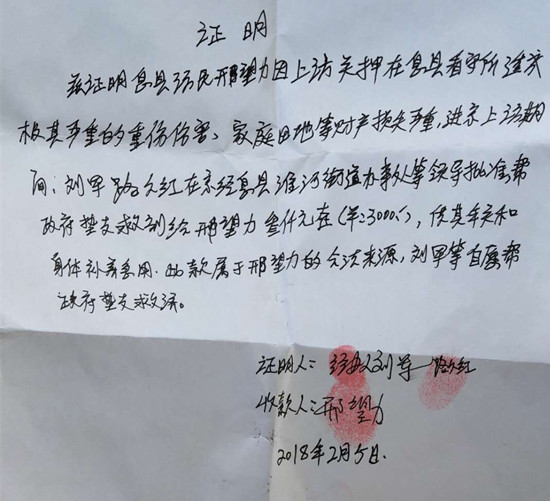 证明
兹证明息县访民邢望力因上访关押在息县看守所造成
极其严重的重伤伤害、家庭田地等财产损失严重,进京上访期
间:刘军路久红在京经息县淮河街道办事处等领导批准帮
政府垫支救济给邢望力叁仟元在(¥:3000.),供其年关和
身体补养急用.此款属于邢望力的合法来源,刘军等自愿帮
政府垫支救济。
证明人:经办人刘军 路久红
收款人:邢望力
2018年2月5日.